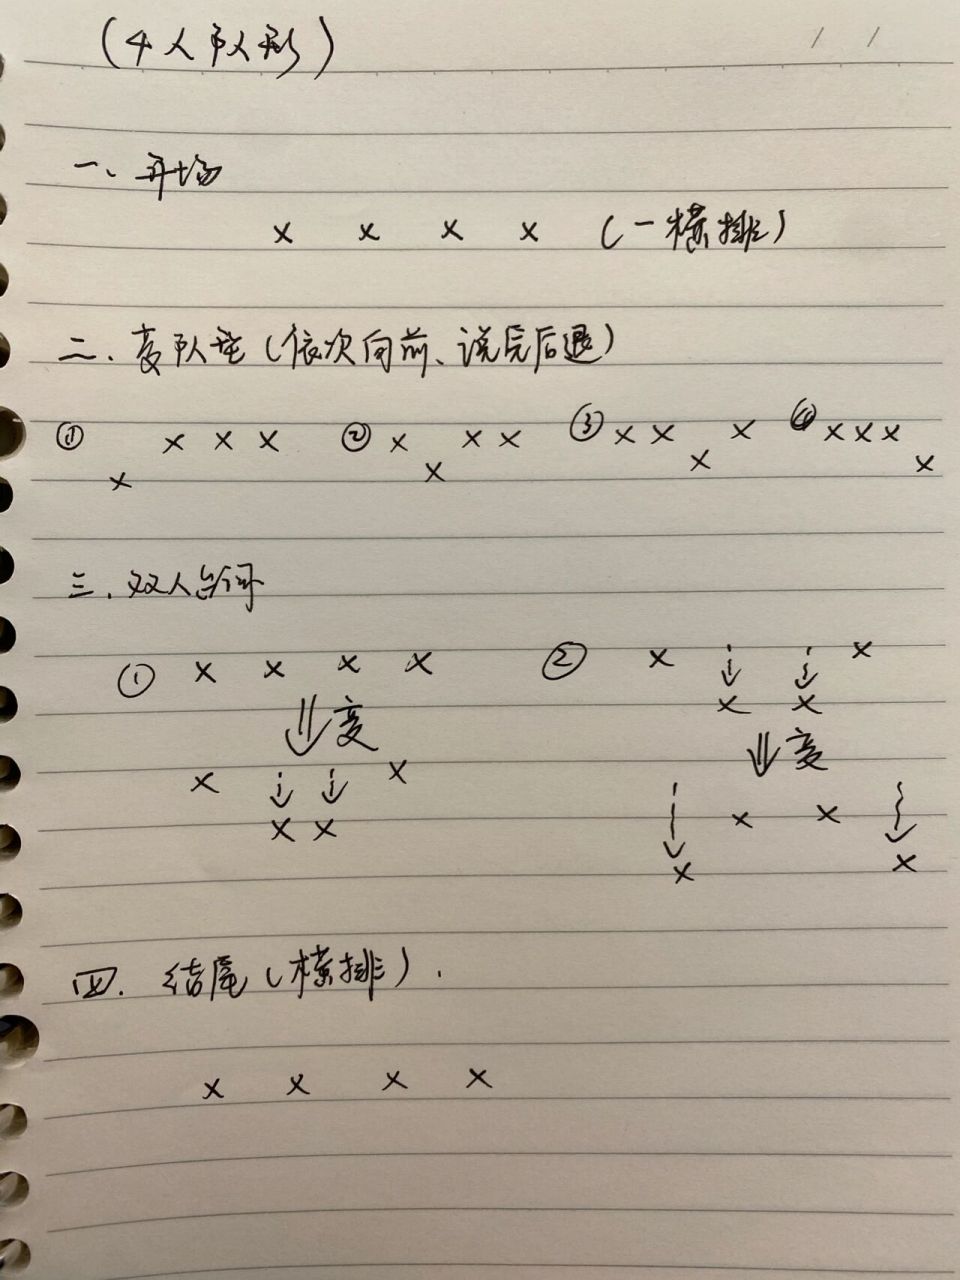 (4人队形)
一、开场
x x x x (一横排)
二、变队型(依次向前、说完后退)
① x x x x ② x x x x ③ x x x x ④ x x x x
三、双人台词
① x x x x ② x x x x
变 变
x x x x x x
x x
四、结尾(横排).
x x x x